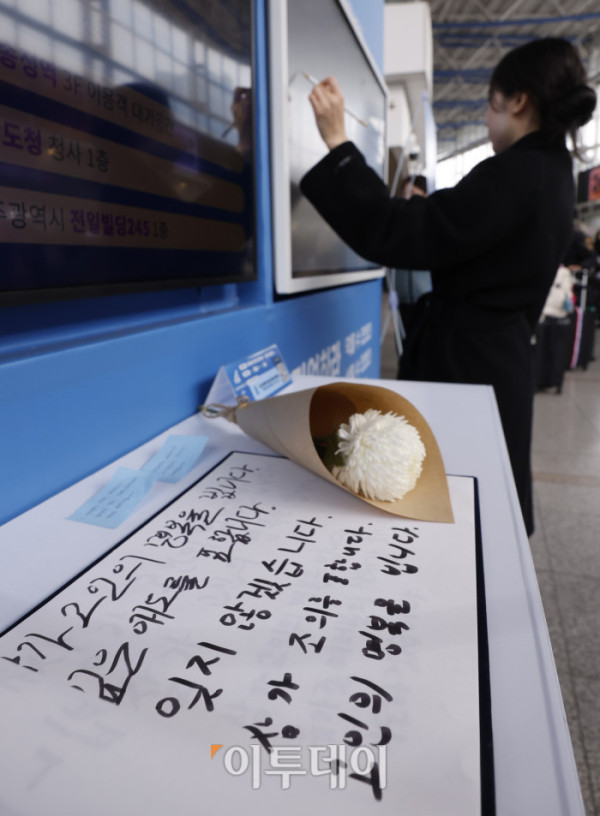 송정역 3F 이용객
도청 청사 1층
주광역시 전일빌딩245 1층
삼가 고인의 명복을 빕니다.
깊은 애도를 표합니다.
잊지 않겠습니다.
삼가 조의를 표합니다.
고인의 명복을 빕니다.
이투데이